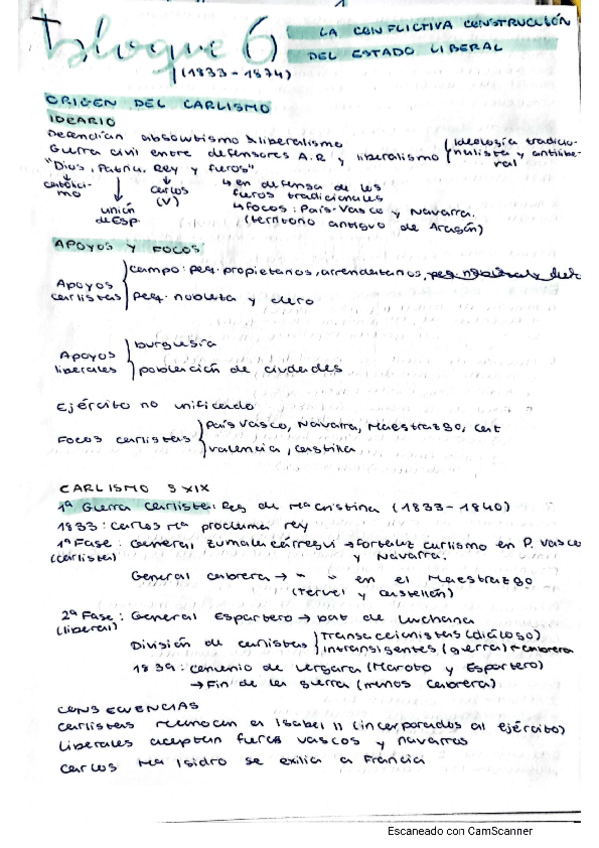 Bloque 6 LA CONFLICTIVA CONSTRUCCIÓN
DEL ESTADO LIBERAL
(1833-1874)
ORIGEN DEL CARLISMO
IDEARIO
Defendían absolutismo liberalismo
Guerra civil entre defensores A.R y liberalismo (Ideología tradicio-
nalista y antilibe-
ral
"Dios, Patria, Rey y fueros"
católici-
mo
unión
de Esp.
Carlos
(V)
↳ en defensa de los
fueros tradicionales
↳ focos: País-Vasco y Navarra.
(territorio antiguo de Aragón)
APOYOS Y FOCOS
Apoyos carlistas
campo: peq. propietarios, arrendatarios,
peq. nobleza y clero
Apoyos liberales
burguesía
población de ciudades
Ejército no unificado
Focos carlistas
País Vasco, Navarra, Maestrazgo, Cat
Valencia, Castilla
CARLISMO S XIX
1ª Guerra Carlista: Reg de Mª Cristina (1833-1840)
1833: Carlos Mª proclama rey
1ª Fase: General Zumalacárregui → fortalez carlismo en P. Vasco
(carlista) y Navarra.
General Cabrera → " " en el Maestrazgo
(Teruel y Castellón)
2ª Fase: General Espartero → bat de Luchana
(liberal)
División de carlistas
Transaccionistas (diálogo)
intransigentes (guerra) → Cabrera
1839: Convenio de Vergara (Maroto y Espartero)
→ Fin de la guerra (menos Cabrera)
CONSECUENCIAS
Carlistas reconocen a Isabel II (incorporados al ejército)
Liberales aceptan fueros vascos y navarros
Carlos Mª Isidro se exilia a Francia
Escaneado con CamScanner